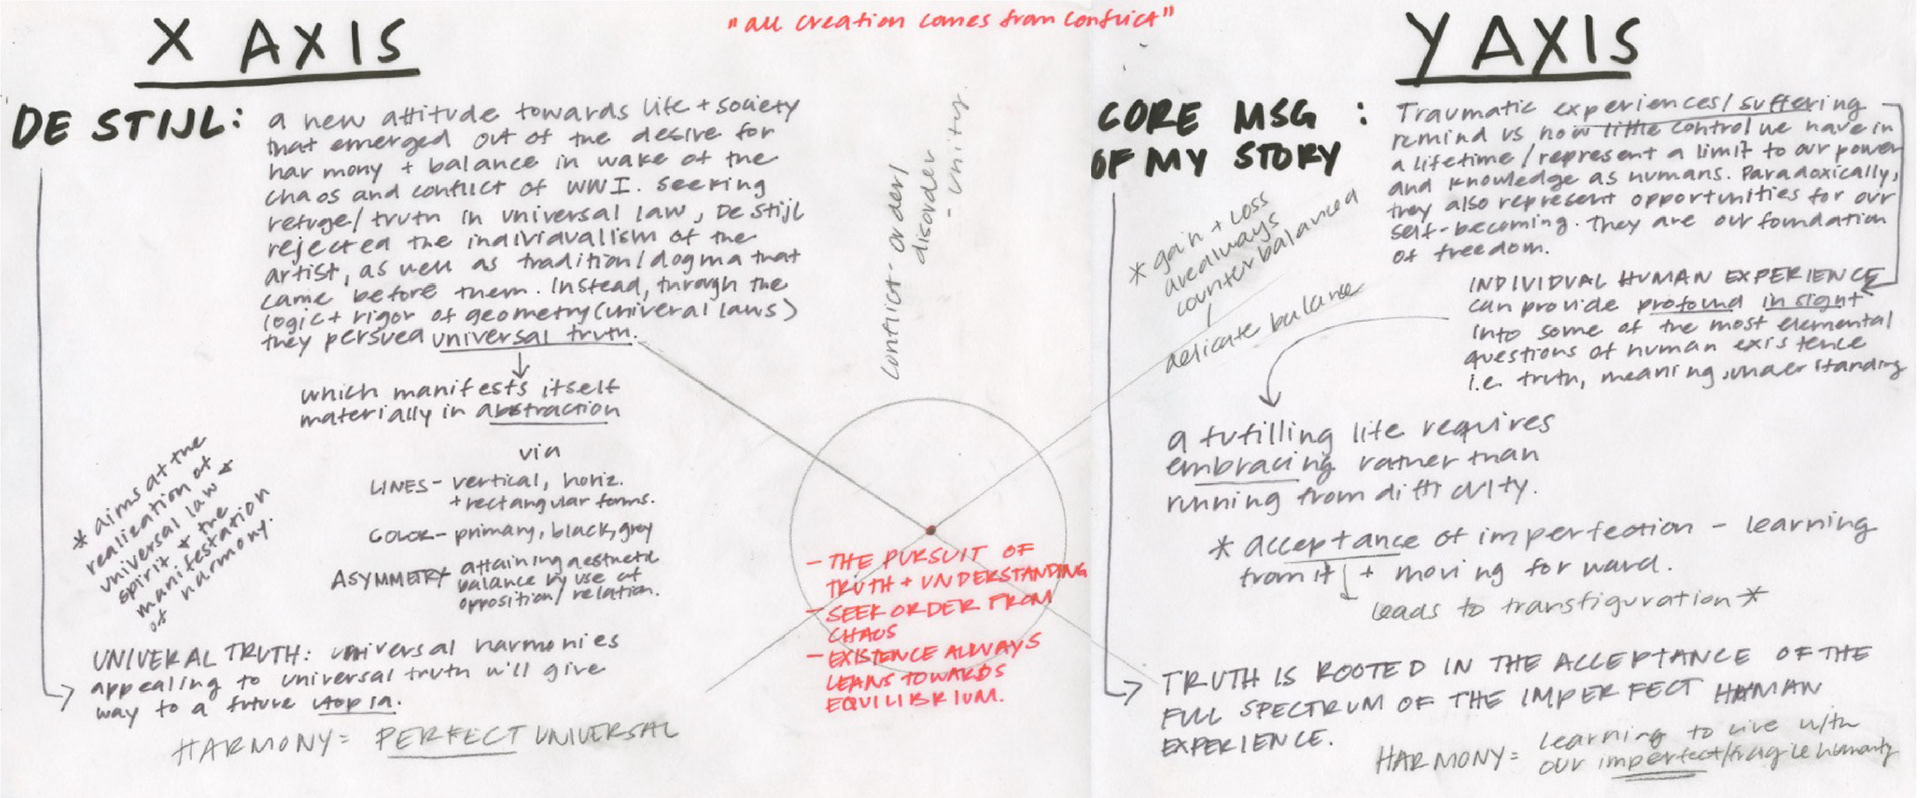 "all creation comes from conflict"
X AXIS
DE STIJL:
a new attitude towards life + society
that emerged out of the desire for
harmony + balance in wake of the
chaos and conflict of WWI. Seeking
refuge/truth in universal law, De Stijl
rejected the individualism of the
artist, as well as tradition/dogma that
came before them. Instead, through the
logic + rigor of geometry (univeral laws)
they persued universal truth.
which manifests itself
materially in abstraction
via
LINES - vertical, horiz.
+ rectangular forms.
COLOR - primary, black, grey
ASYMMETRY - attaining aesthetic
balance by use of
opposition/relation.
* aims at the
realization of
universal law &
spirit & the
manifestation
of harmony.
UNIVERAL TRUTH: universal harmonies
appealing to universal truth will give
way to a future utopia.
HARMONY = PERFECT UNIVERSAL
conflict - order/
disorder
- unity.
- THE PURSUIT OF
TRUTH + UNDERSTANDING
- SEEK ORDER FROM
CHAOS
- EXISTENCE ALWAYS
LEANS TOWARDS
EQUILIBRIUM.
Y AXIS
CORE MSG :
OF MY STORY
Traumatic experiences/suffering
remind us how little control we have in
a lifetime/represent a limit to our power
and knowledge as humans. Paradoxically,
they also represent opportunities for our
self-becoming. They are our foundation
of freedom.
* gain + loss
are always
counterbalanced
delicate balance
INDIVIDUAL HUMAN EXPERIENCE
can provide profound insight
into some of the most elemental
questions of human existence
i.e. truth, meaning, understanding
a fufilling life requires
embracing rather than
running from difficulty.
* acceptance of imperfection - learning
from it + moving forward.
leads to transfiguration *
TRUTH IS ROOTED IN THE ACCEPTANCE OF THE
FULL SPECTRUM OF THE IMPERFECT HUMAN
EXPERIENCE.
HARMONY = learning to live with
our imperfect/fragile humanity